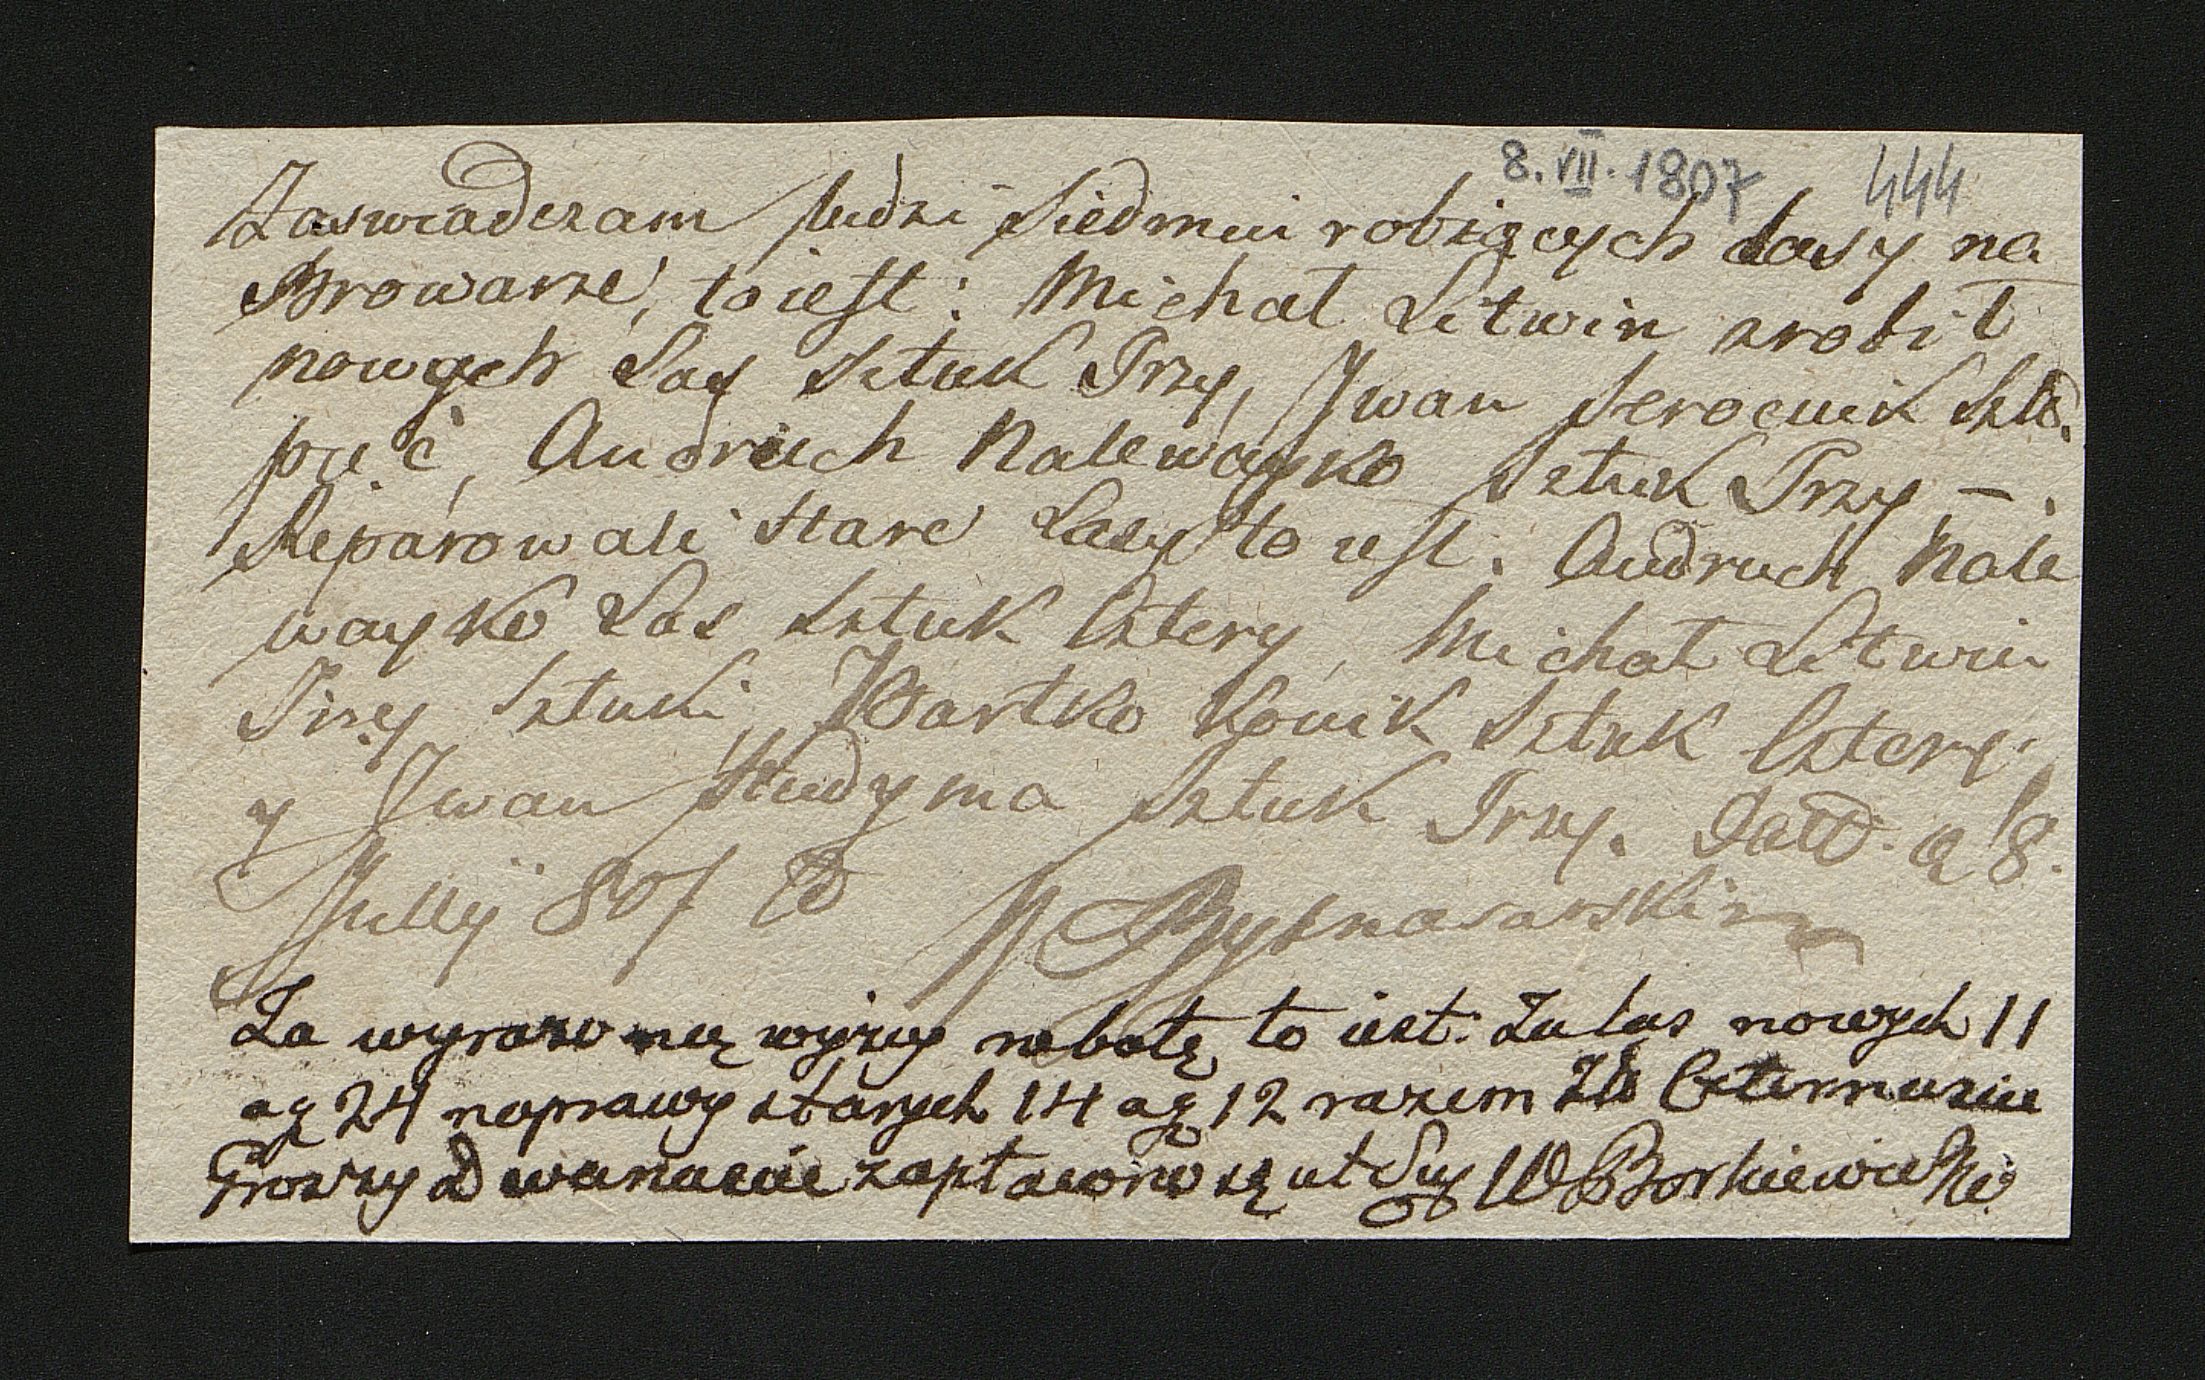 8. VII. 1807 444
Zaswiadczam ludzi siedmiu robiących Lasy na
Browarze, to iest: Michał Litwin zrobił
nowych Las sztuk Trzy, Jwan Serocuik szt.
pięć, Andruch Nalewayko sztuk Trzy –.
Reparowali stare Lasy to iest. Andruch Nale
wayko Las sztuk Cztery, Michał Litwin
Trzy sztuki, Wartko Konik sztuk Cztery
y Jwan Studyma sztuk Trzy. Datt. ą 8.
Jullÿ 807
Za wyrazoną wyzey robotę to iest: Za las nowych 11
ag 24 noprawy starych 14 ag 12 razem Zł Czternascie
Groszy Dwanascie zapłacono są ut Sug W Borkiewicz